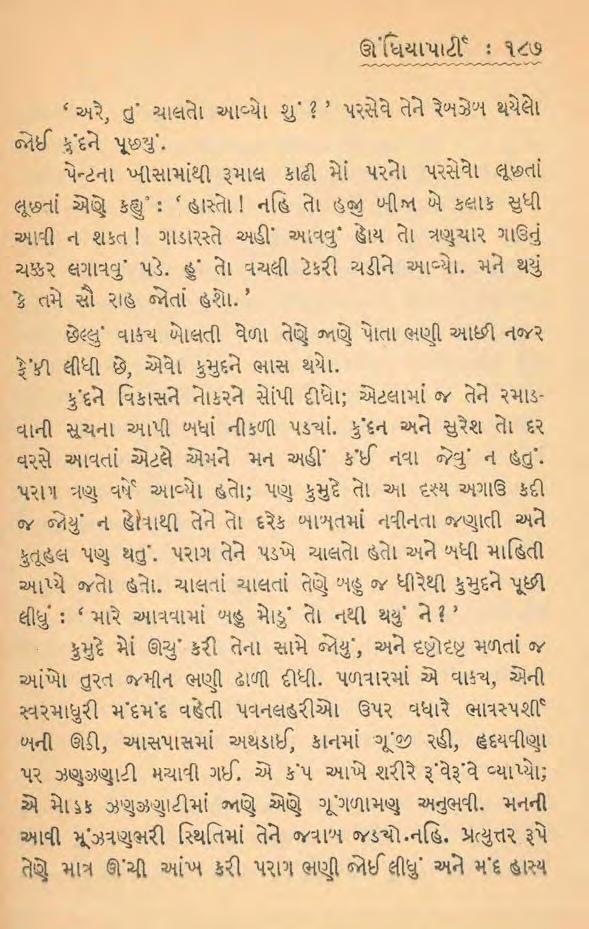 ઊંધિયાપાર્ટી : ૧૮૭
‘ અરે, તું ચાલતો આવ્યો શું ? ’ પરસેવે તેને રેબઝેબ થયેલો
જોઈ કુંદને પૂછ્યું.
પેન્ટના ખીસામાંથી રૂમાલ કાઢી મોં પરનો પરસેવો લૂછતાં
લૂછતાં એણે કહ્યું : ‘ હાસ્તો ! નહિ તો હજી બીજા બે કલાક સુધી
આવી ન શકત ! ગાડારસ્તે અહીં આવવું હોય તો ત્રણચાર ગાઉનું
ચક્કર લગાવવું પડે. હું તો વચલી ટેકરી ચડીને આવ્યો. મને થયું
કે તમે સૌ રાહ જોતાં હશો. ’
છેલ્લું વાક્ય બોલતી વેળા તેણે જાણે પોતા ભણી આછી નજર
ફેંકી લીધી છે, એવો કુમુદને ભાસ થયો.
કુંદને વિકાસને નોકરને સોંપી દીધો; એટલામાં જ તેને રમાડ-
વાની સૂચના આપી બધાં નીકળી પડ્યાં. કુંદન અને સુરેશ તો દર
વરસે આવતાં એટલે એમને મન અહીં કંઈ નવા જેવું ન હતું.
પરાગ ત્રણ વર્ષે આવ્યો હતો; પણ કુમુદે તો આ દૃશ્ય અગાઉ કદી
જ જોયું ન હોવાથી તેને તો દરેક બાબતમાં નવીનતા જણાતી અને
કુતૂહલ પણ થતું. પરાગ તેને પડખે ચાલતો હતો અને બધી માહિતી
આપ્યે જતો હતો. ચાલતાં ચાલતાં તેણે બહુ જ ધીરેથી કુમુદને પૂછી
લીધું : ‘ મારે આવવામાં બહુ મોડું તો નથી થયું ને ? ’
કુમુદે મોં ઊચું કરી તેના સામે જોયું, અને દષ્ટોદષ્ટ મળતાં જ
આંખો તુરત જમીન ભણી ઢાળી દીધી. પળવારમાં એ વાક્ય, એની
સ્વરમાધુરી મંદમંદ વહેતી પવનલહરીઓ ઉપર વધારે ભાવસ્પર્શી
બની ઊડી, આસપાસમાં અથડાઈ, કાનમાં ગૂંજી રહી, હૃદયવીણા
પર ઝણઝણાટી મચાવી ગઈ. એ કંપ આખે શરીરે રૂંવેરૂંવે વ્યાપ્યો;
એ મોડક ઝણઝણાટીમાં જાણે એણે ગૂંગળામણ અનુભવી. મનની
આવી મૂંઝવણભરી સ્થિતિમાં તેને જવાબ જડ્યો નહિ. પ્રત્યુત્તર રૂપે
તેણે માત્ર ઊંચી આંખ કરી પરાગ ભણી જોઈ લીધું અને મંદ હાસ્ય